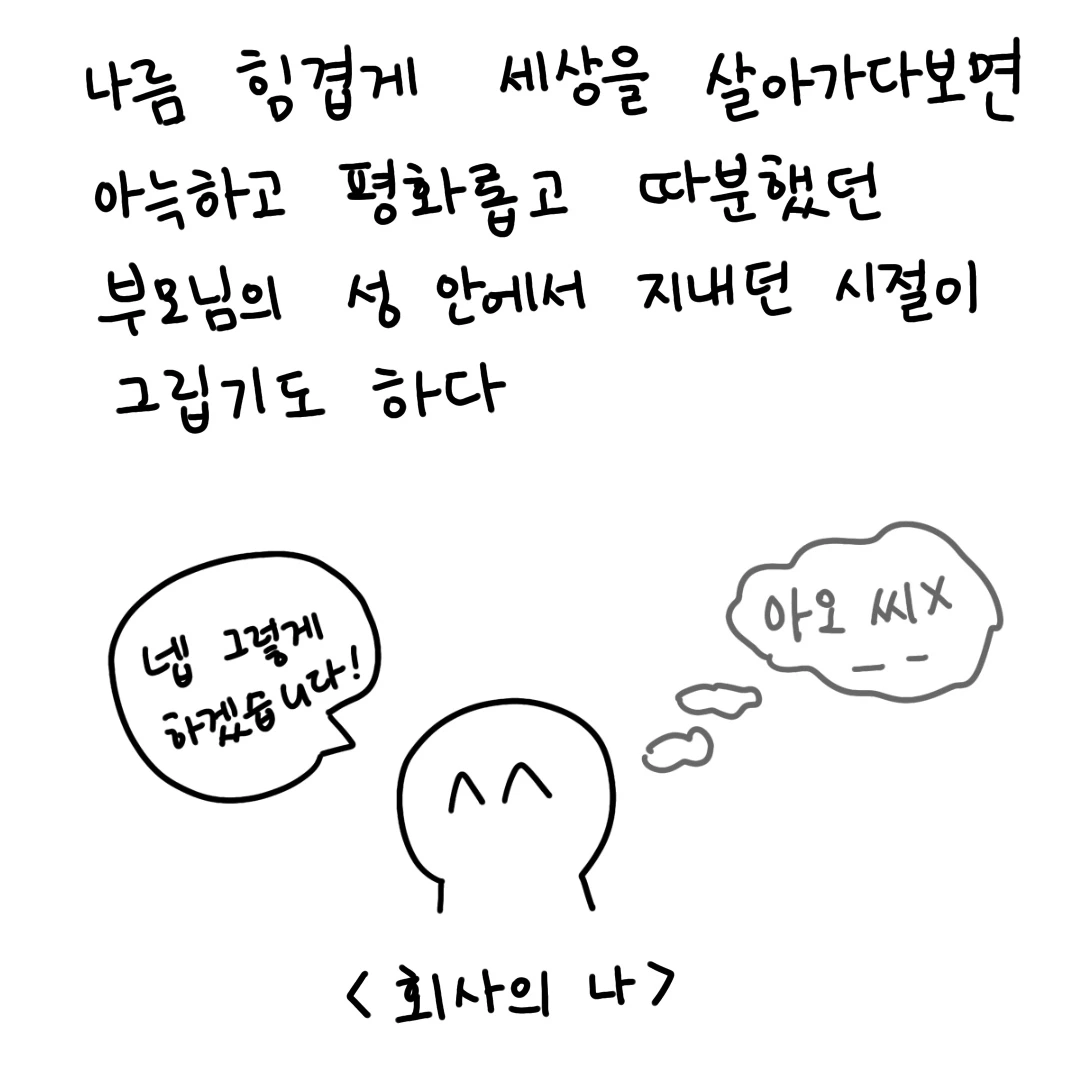 나름 힘겹게 세상을 살아가다보면
아늑하고 평화롭고 따분했던
부모님의 성 안에서 지내던 시절이
그립기도 하다
넵 그렇게
하겠습니다!
아오 씨X
<회사의 나>